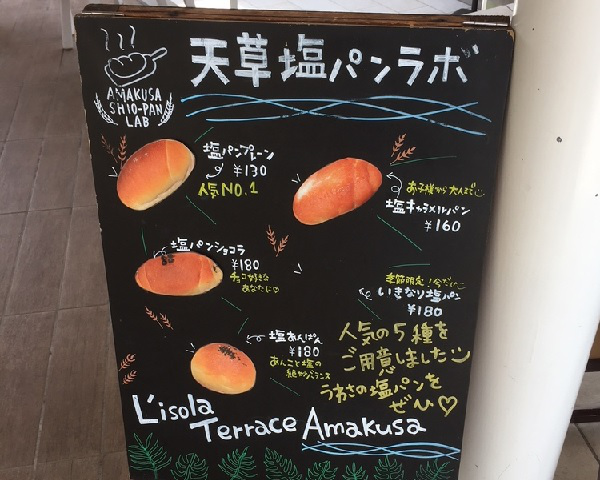 天草塩パンラボ
AMAKUSA
SHIO-PAN
LAB
塩パンプレーン
¥130
人気NO.1
お子様から大人まで
塩キャラメルパン
¥160
塩パンショコラ
¥180
チョコ好きな
あなたに
季節限定！今だけ
いきなり塩パン
¥180
塩あんぱん
¥180
あんこと塩の
絶妙バランス
人気の5種を
ご用意しました
うわさの塩パンを
ぜひ♡
L'isola
Terrace Amakusa